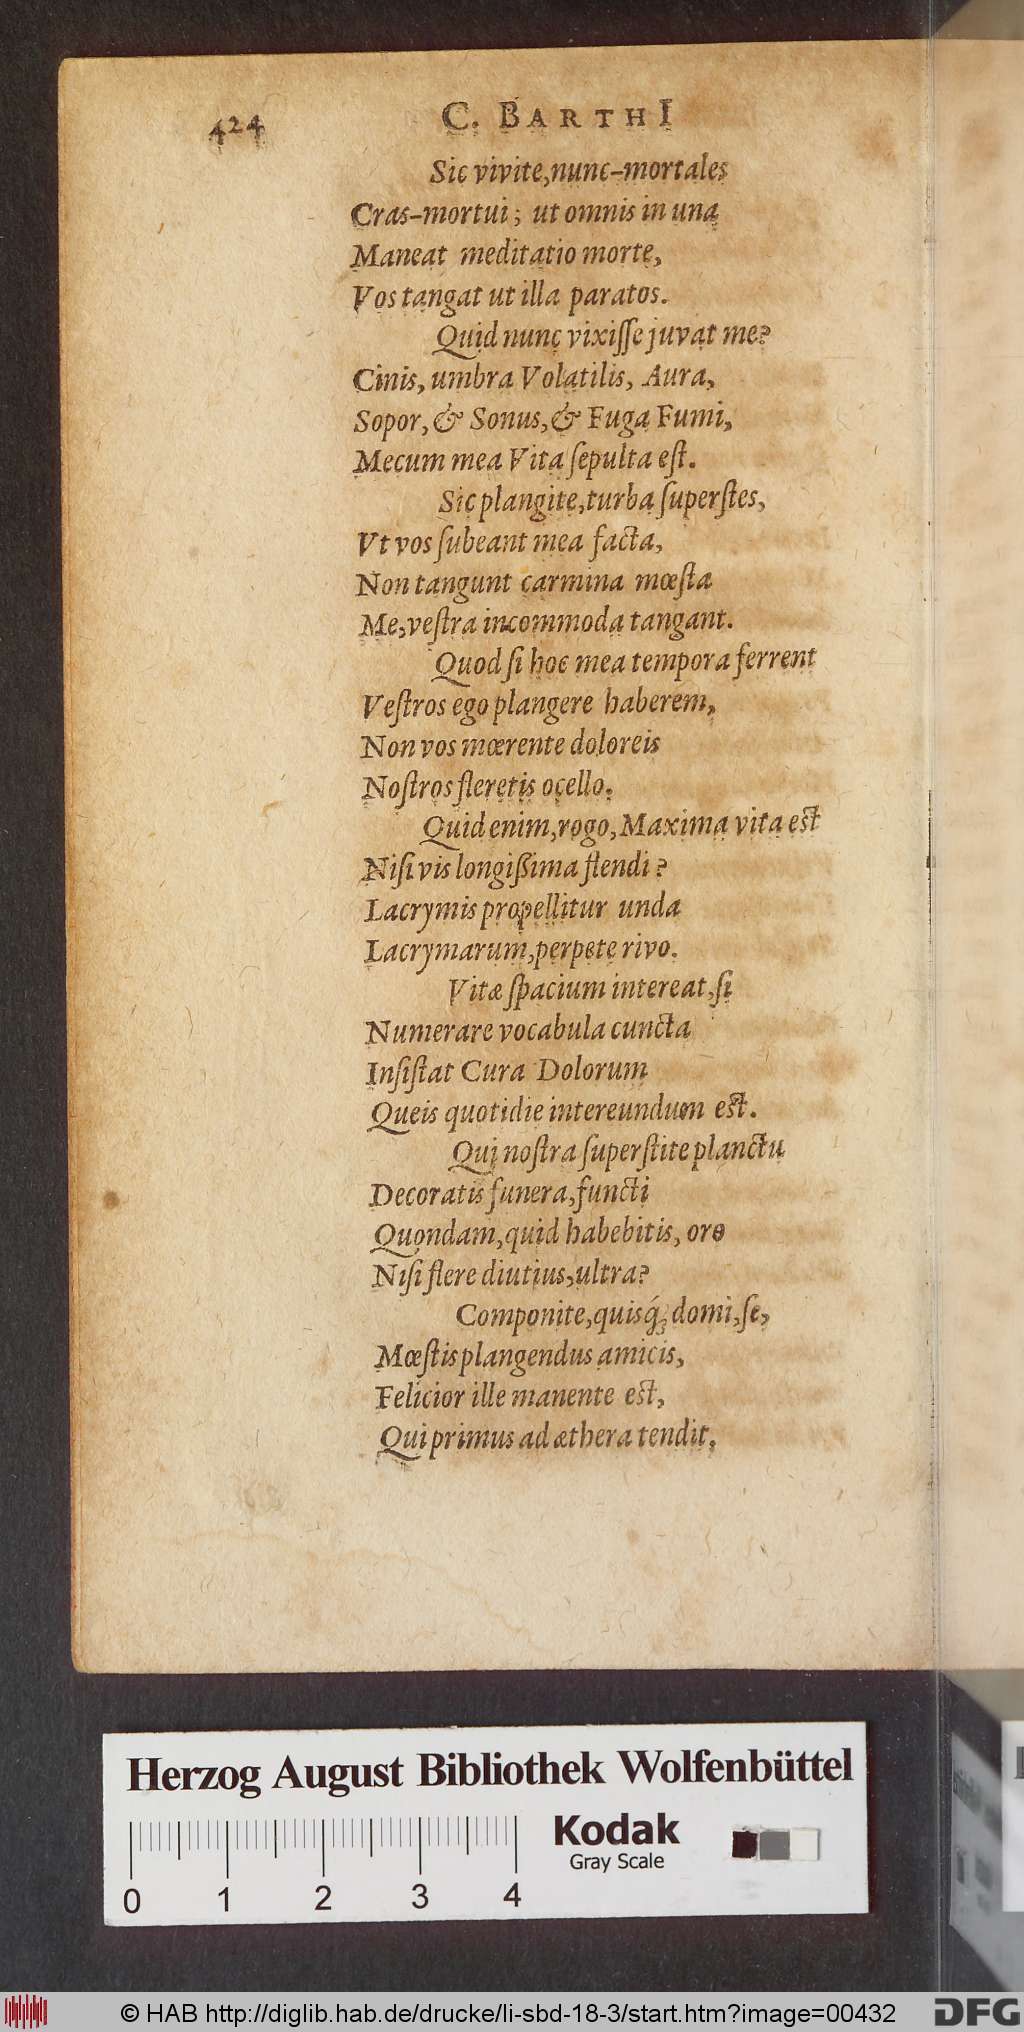 424
C. BARTHI
Sic vivite, nunc-mortales
Cras-mortui; ut omnis in una
Maneat meditatio morte,
Vos tangat ut illa paratos.
Quid nunc vixiſſe juvat me?
Cinis, umbra Volatilis, Aura,
Sopor, & Sonus, & Fuga Fumi,
Mecum mea Vita ſepulta eſt.
Sic plangite, turba ſuperſtes,
Vt vos ſubeant mea facta,
Non tangunt carmina mœſta
Me, veſtra incommoda tangant.
Quod ſi hoc mea tempora ferrent
Veſtros ego plangere haberem,
Non vos mœrente doloreis
Noſtros fleretis ocello.
Quid enim, rogo, Maxima vita eſt
Niſi vis longiſſima flendi?
Lacrymis propellitur unda
Lacrymarum, perpete rivo.
Vitæ ſpacium intereat, ſi
Numerare vocabula cuncta
Inſiſtat Cura Dolorum
Queis quotidie intereundum eſt.
Qui noſtra ſuperſtite planctu
Decoratis funera, functi
Quondam, quid habebitis, ore
Niſi flere diutius, ultra?
Componite, quisq́; domi, ſe,
Mœſtis plangendus amicis,
Felicior ille manente eſt,
Qui primus ad æthera tendit.
Herzog August Bibliothek Wolfenbüttel
Kodak
Gray Scale
0 1 2 3 4
© HAB http://diglib.hab.de/drucke/li-sbd-18-3/start.htm?image=00432
DFG